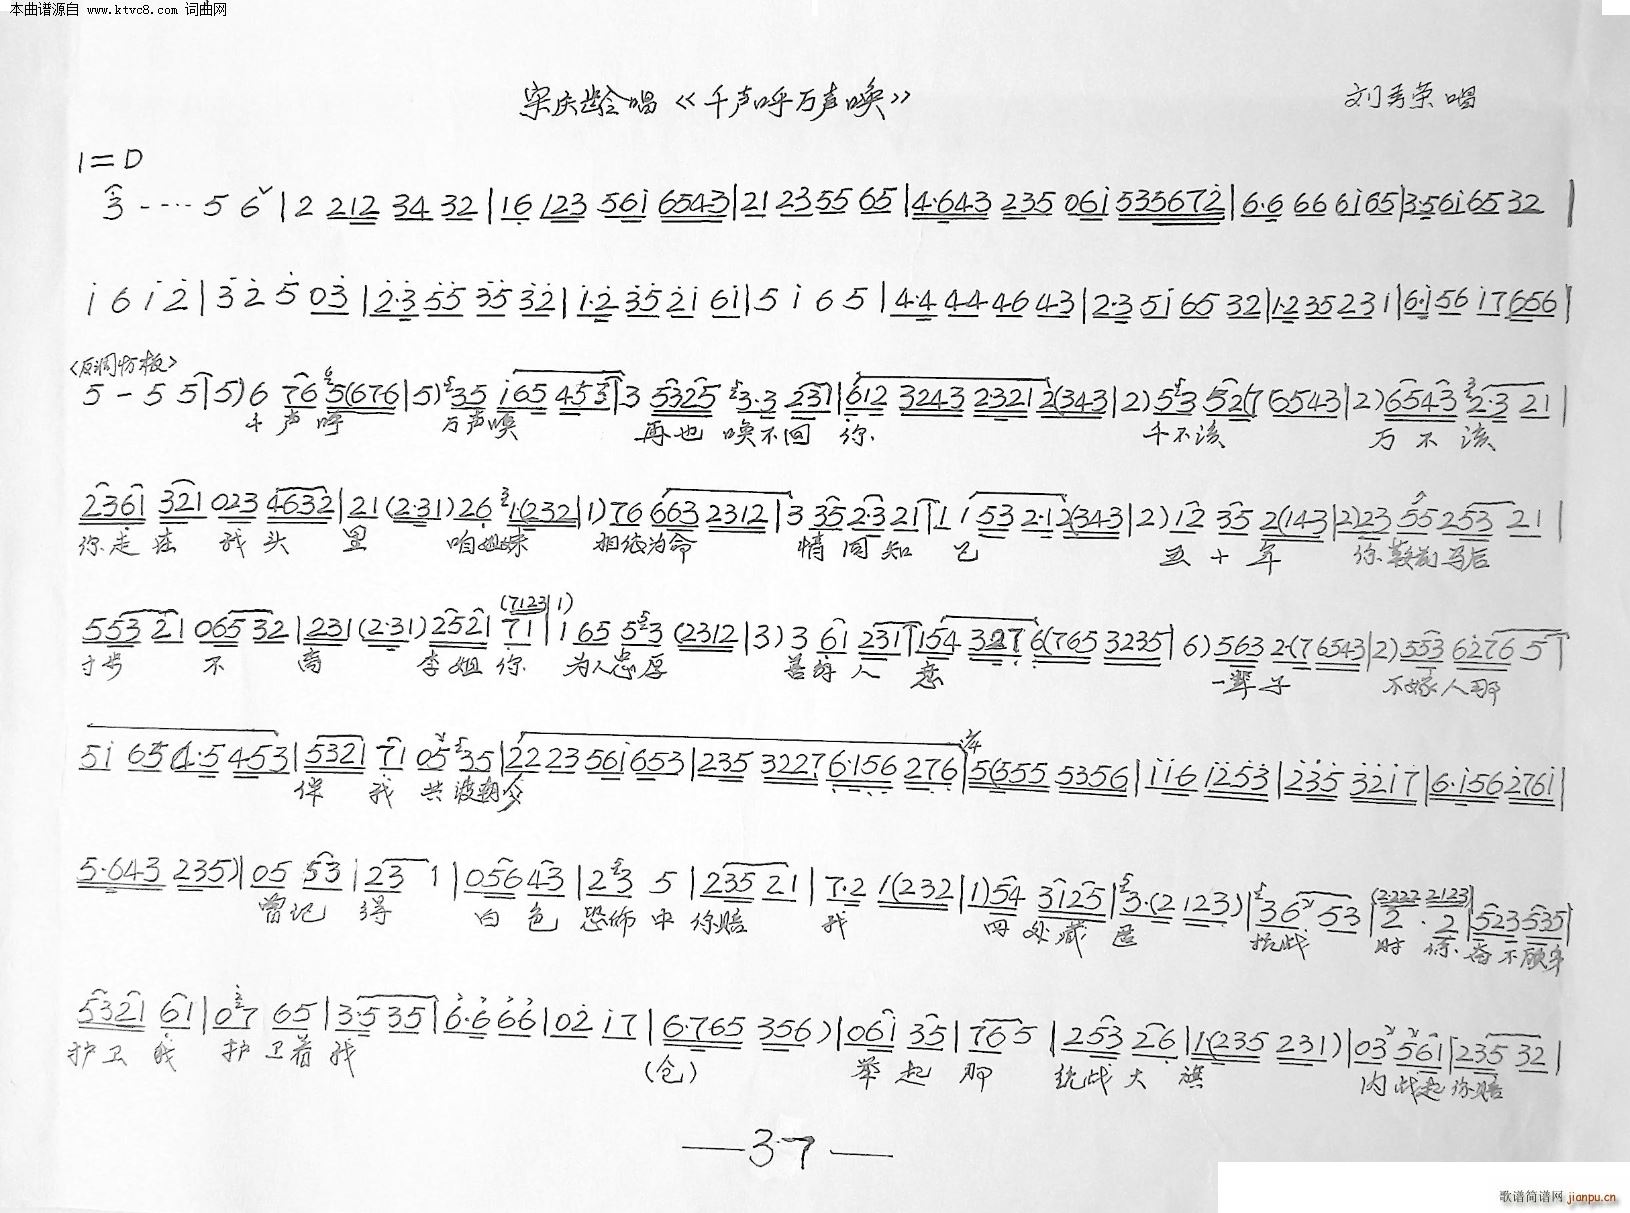 本曲谱源自 www.ktvc8.com 词曲网
宋庆龄唱《千声呼万声唤》 刘秀荣唱
1=D
3 - ··· 5 6 ˇ | 2 212 34 32 | 16 123 561 6543 | 21 2355 65 | 4·643 235 061 535672 | 6·6 66 6165 | 3·56165 32 |
1 6 1 2 | 3 2 5 03 | 2·3 55 35 32 | 1·2 35 21 61 | 5 1 6 5 | 4·4 44 46 43 | 2·3 51 65 32 | 1·2 35 23 1 | 6·156 17656 |
〈反调慢板〉
5 - 5 5 | 5) 6 76 5(676 | 5) 35 165 453 | 3 5325 3·3 231 | 612 3243 2321 2(343 | 2) 53 52(7 6543 | 2) 6543 2·3 21 |
千声呼 万声唤 再也唤不回你 千不该 万不该
2361 321 023 4632 | 21 (2·31) 26 1(232 | 1) 76 663 2312 | 3 35 2·3 21 | 1 1 53 2·12(343 | 2) 12 35 2(143 | 2) 23 55 253 21 |
你走在我头里 咱姐妹 相依为命 情同知己 五十年 你鞍前马后
553 21 065 32 | 231 (2·31) 2521 71 (7123 | 1) | 1 65 53 (2312 | 3) 3 61 231 | 154 327 6(765 3235 | 6) 563 2·(7 6543 | 2) 553 6276 5 |
寸步不离 李姐你 为人忠厚 善解人意 一辈子 不嫁人那
51 65 4·5 453 | 5321 71 05 35 | 22 23 561653 | 235 3227 6·156 276 | 2/4 5(555 5356 | 116 1253 | 235 3217 | 6·156 2761 |
伴我共渡朝夕
5·643 235) | 05 53 | 23 1 | 056 43 | 23 5 | 235 21 | 7·2 1(232 | 1) 54 3125 | 3·(2 123) | 36 53 | (2·222 2123) 2 · 2 | 523 535 |
曾记得 白色恐怖中你陪我 四处藏匿 抗战时你奋不顾身
5321 61 | 07 65 | 3·535 | 6·6 66 | 02 17 | 6·765 356) | 061 35 | 76 5 | 253 26 | 1(235 231) | 03 561 | 235 32 |
护卫我 护卫着我 (仓) 举起那 统战大旗 内战起你陪
—37—
歌谱简谱网 jianpu.cn